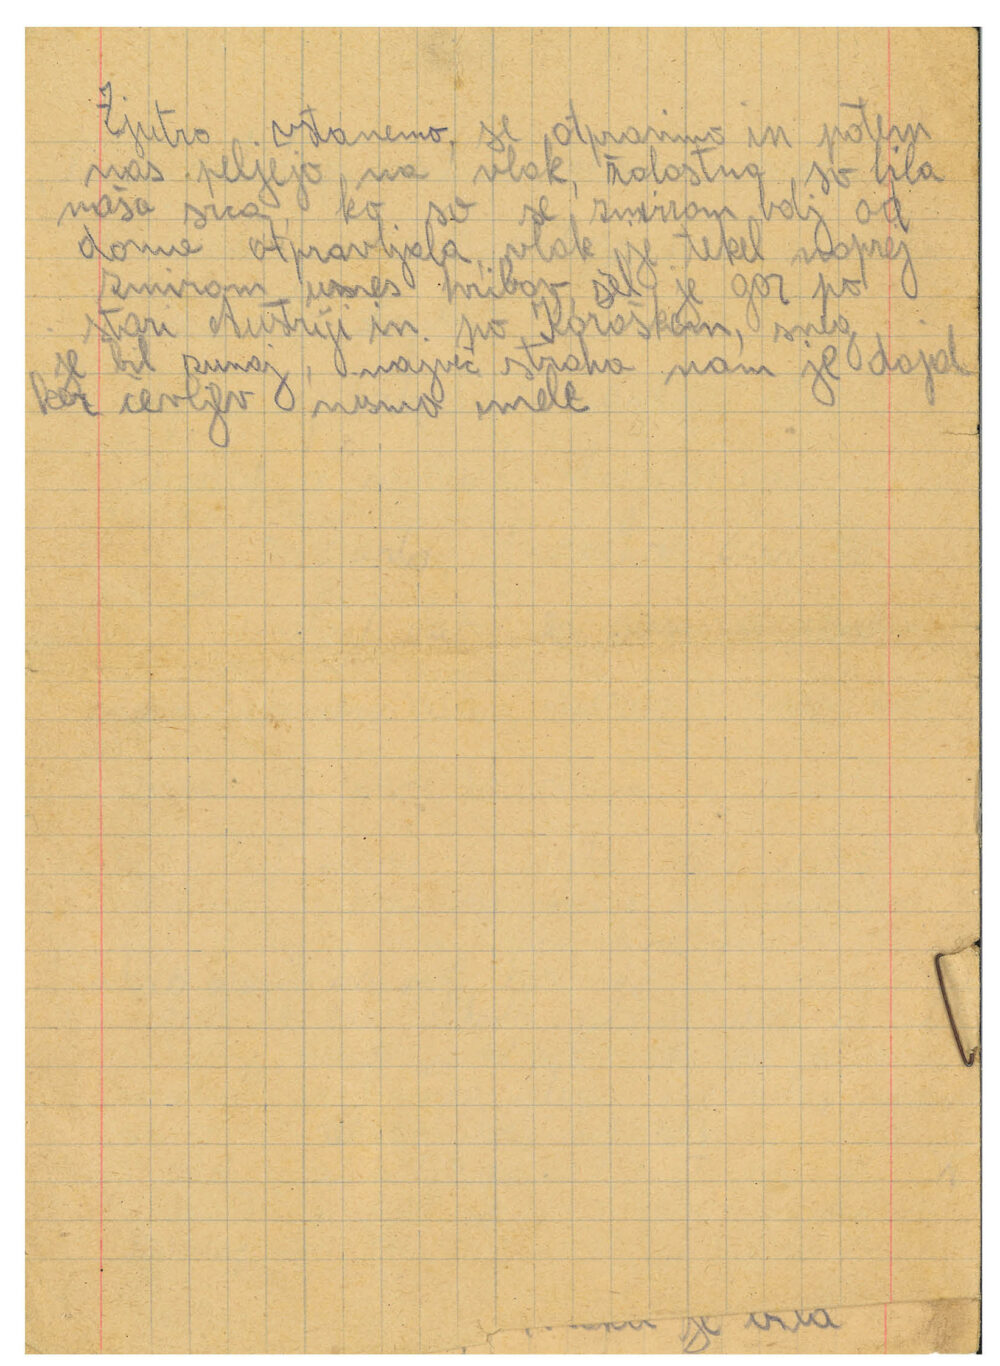 Zjutro vstanemo, se otpravimo in potem
nas peljejo na vlak, žalostna so bila
naša srca, ko so se zmirram bolj od
dome otpravljala, vlak je tekel naprej
zmiram umes hribov, šel je gor po
stari Austriji in po Koroškem, sneg
je bil zunaj, največ straha nam je dajal
ker čevljev nismo imele
je